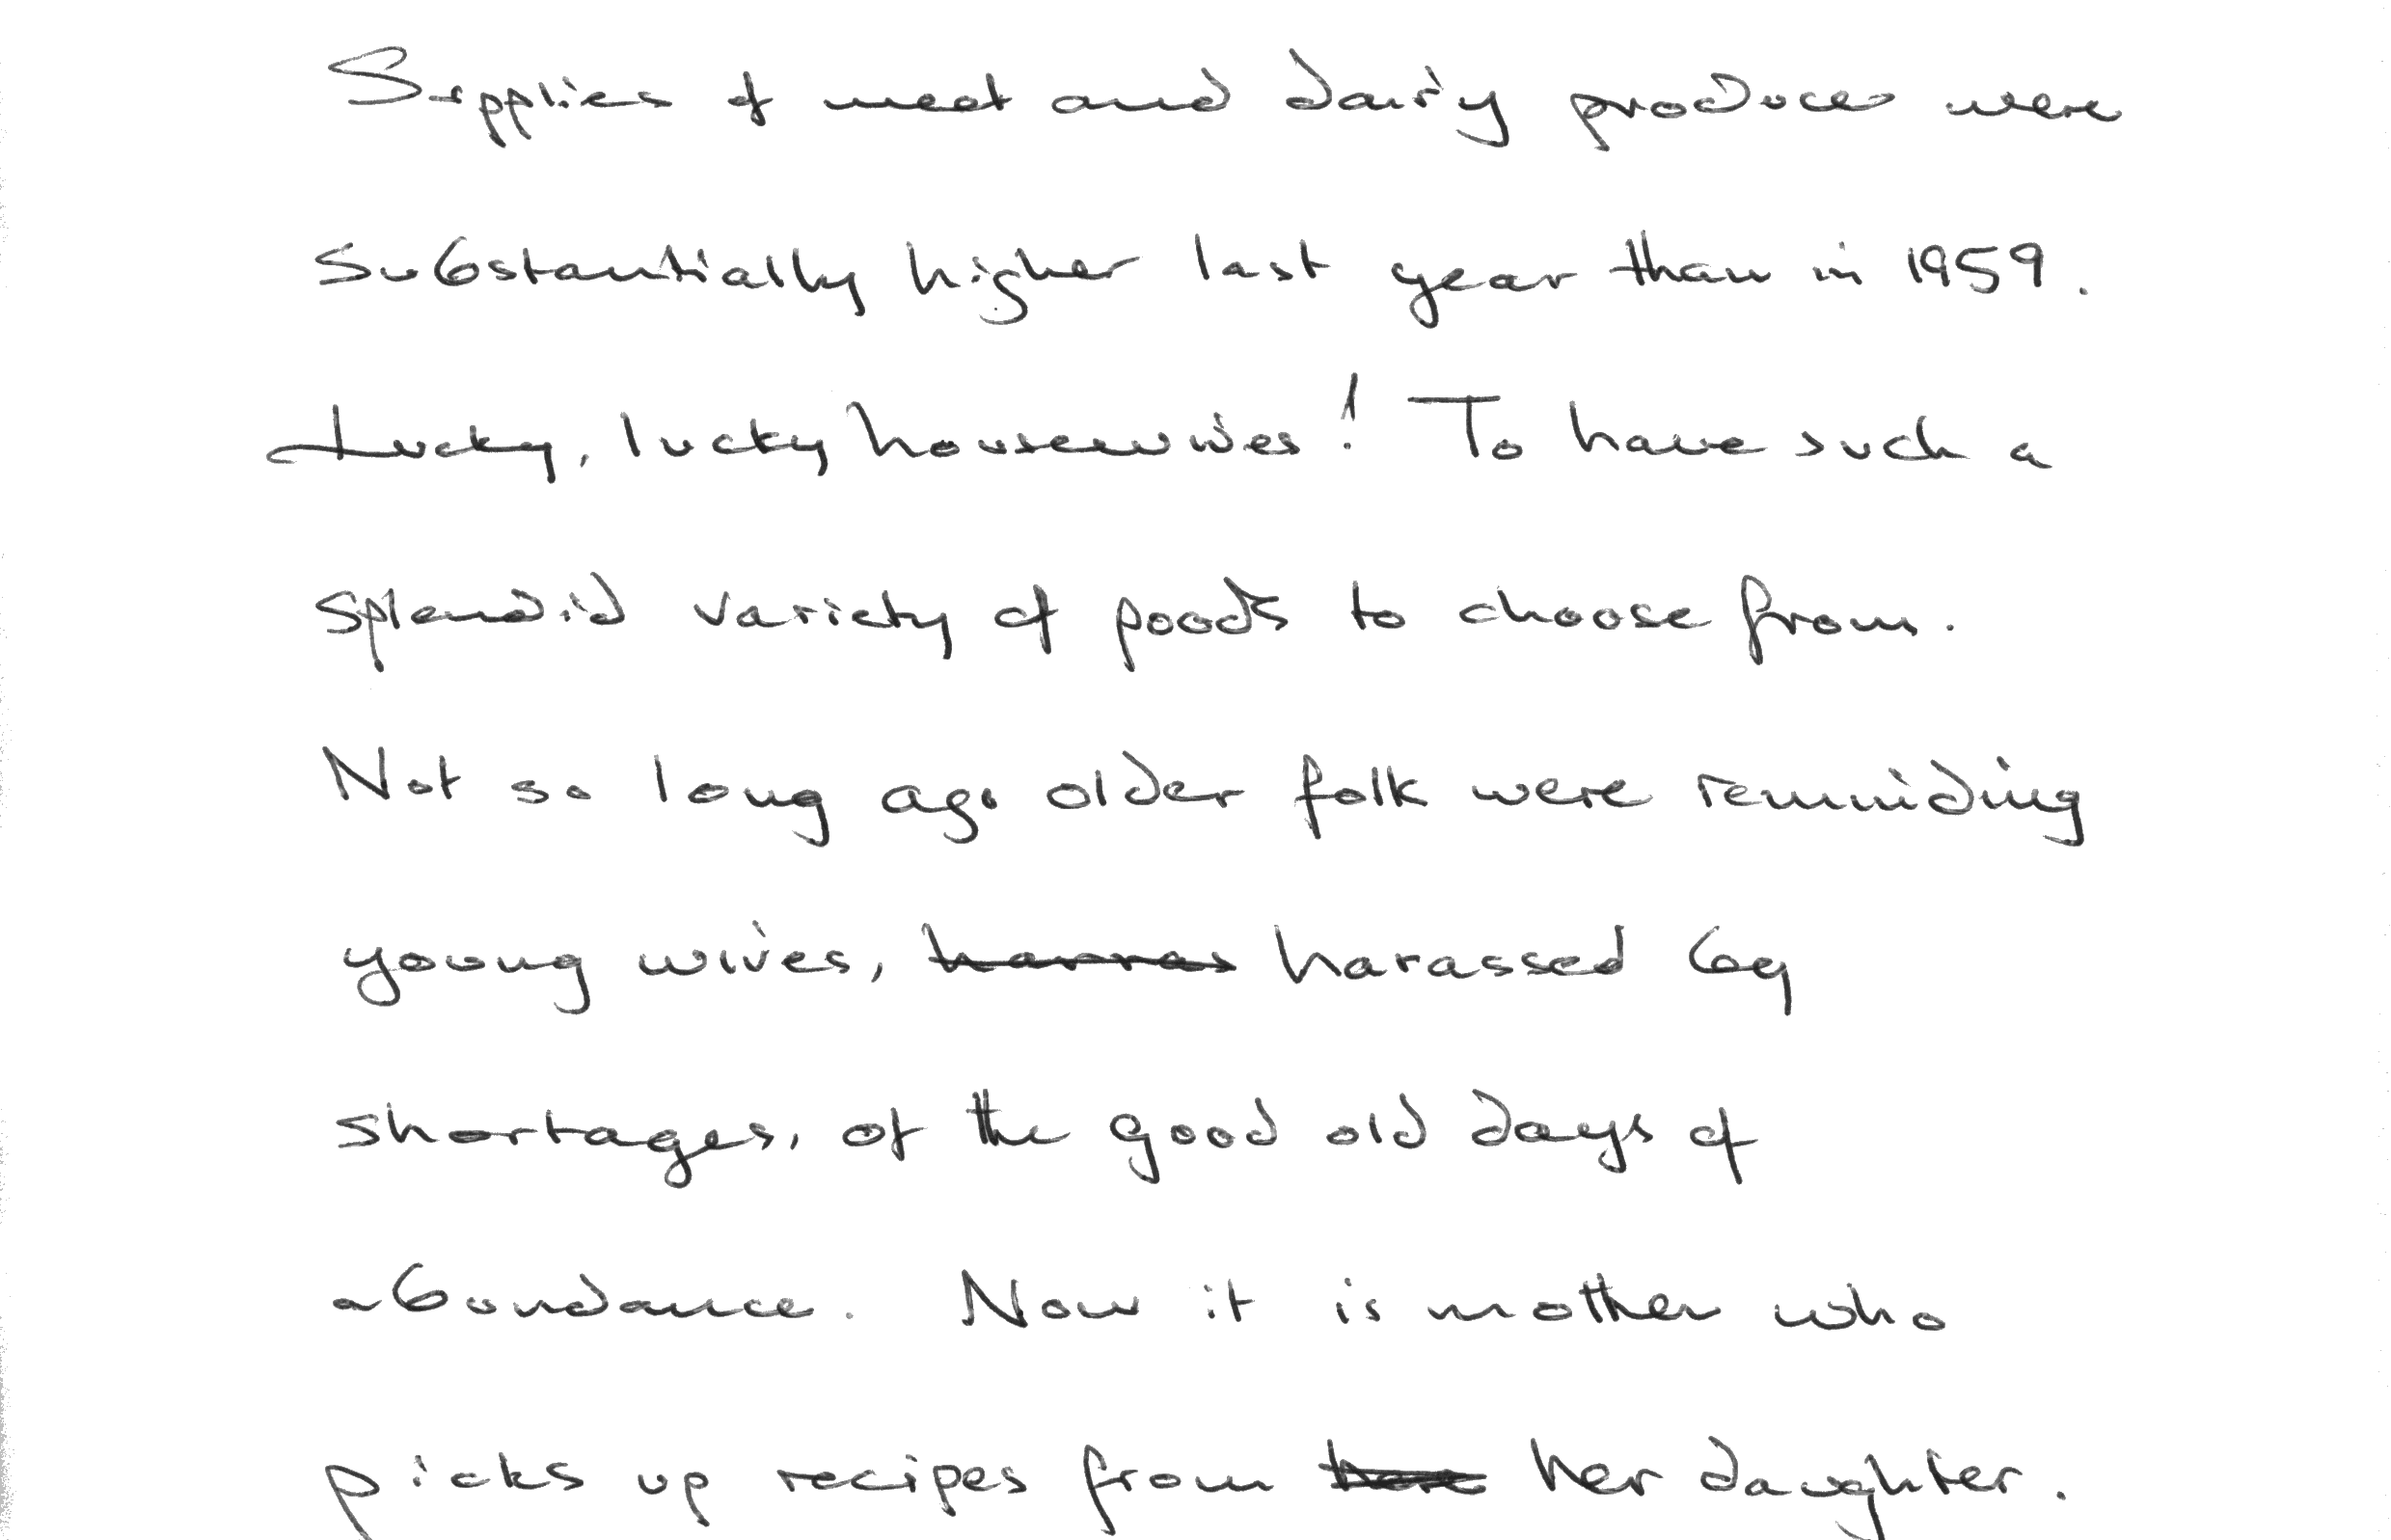 Supplies of meat and dairy produce were
substantially higher last year than in 1959.
Lucky, lucky housewives! To have such a
splendid variety of foods to choose from.
Not so long ago older folk were reminding
young wives, harras harassed by
shortages, of the good old days of
abundance. Now it is mother who
picks up recipes from her daughter.